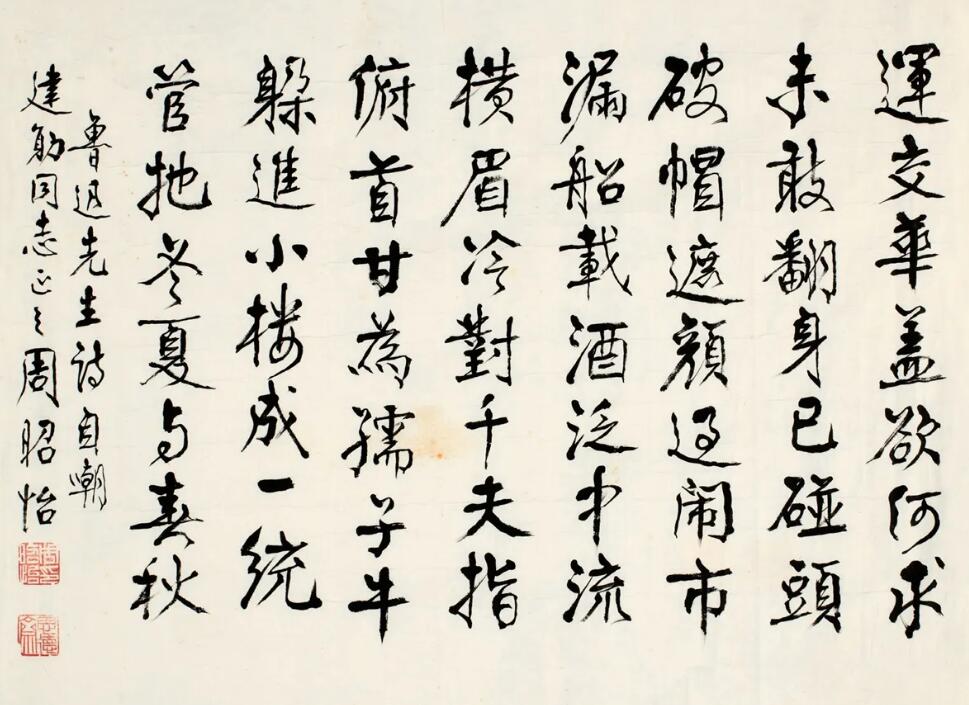 運交華盖欲何求
未敢翻身已碰頭
破帽遮顔過闹市
漏船載酒泛中流
横眉冷對千夫指
俯首甘為孺子牛
躲進小楼成一统
管牠冬夏与春秋
魯迅先生诗自嘲
建勋同志正之周昭怡